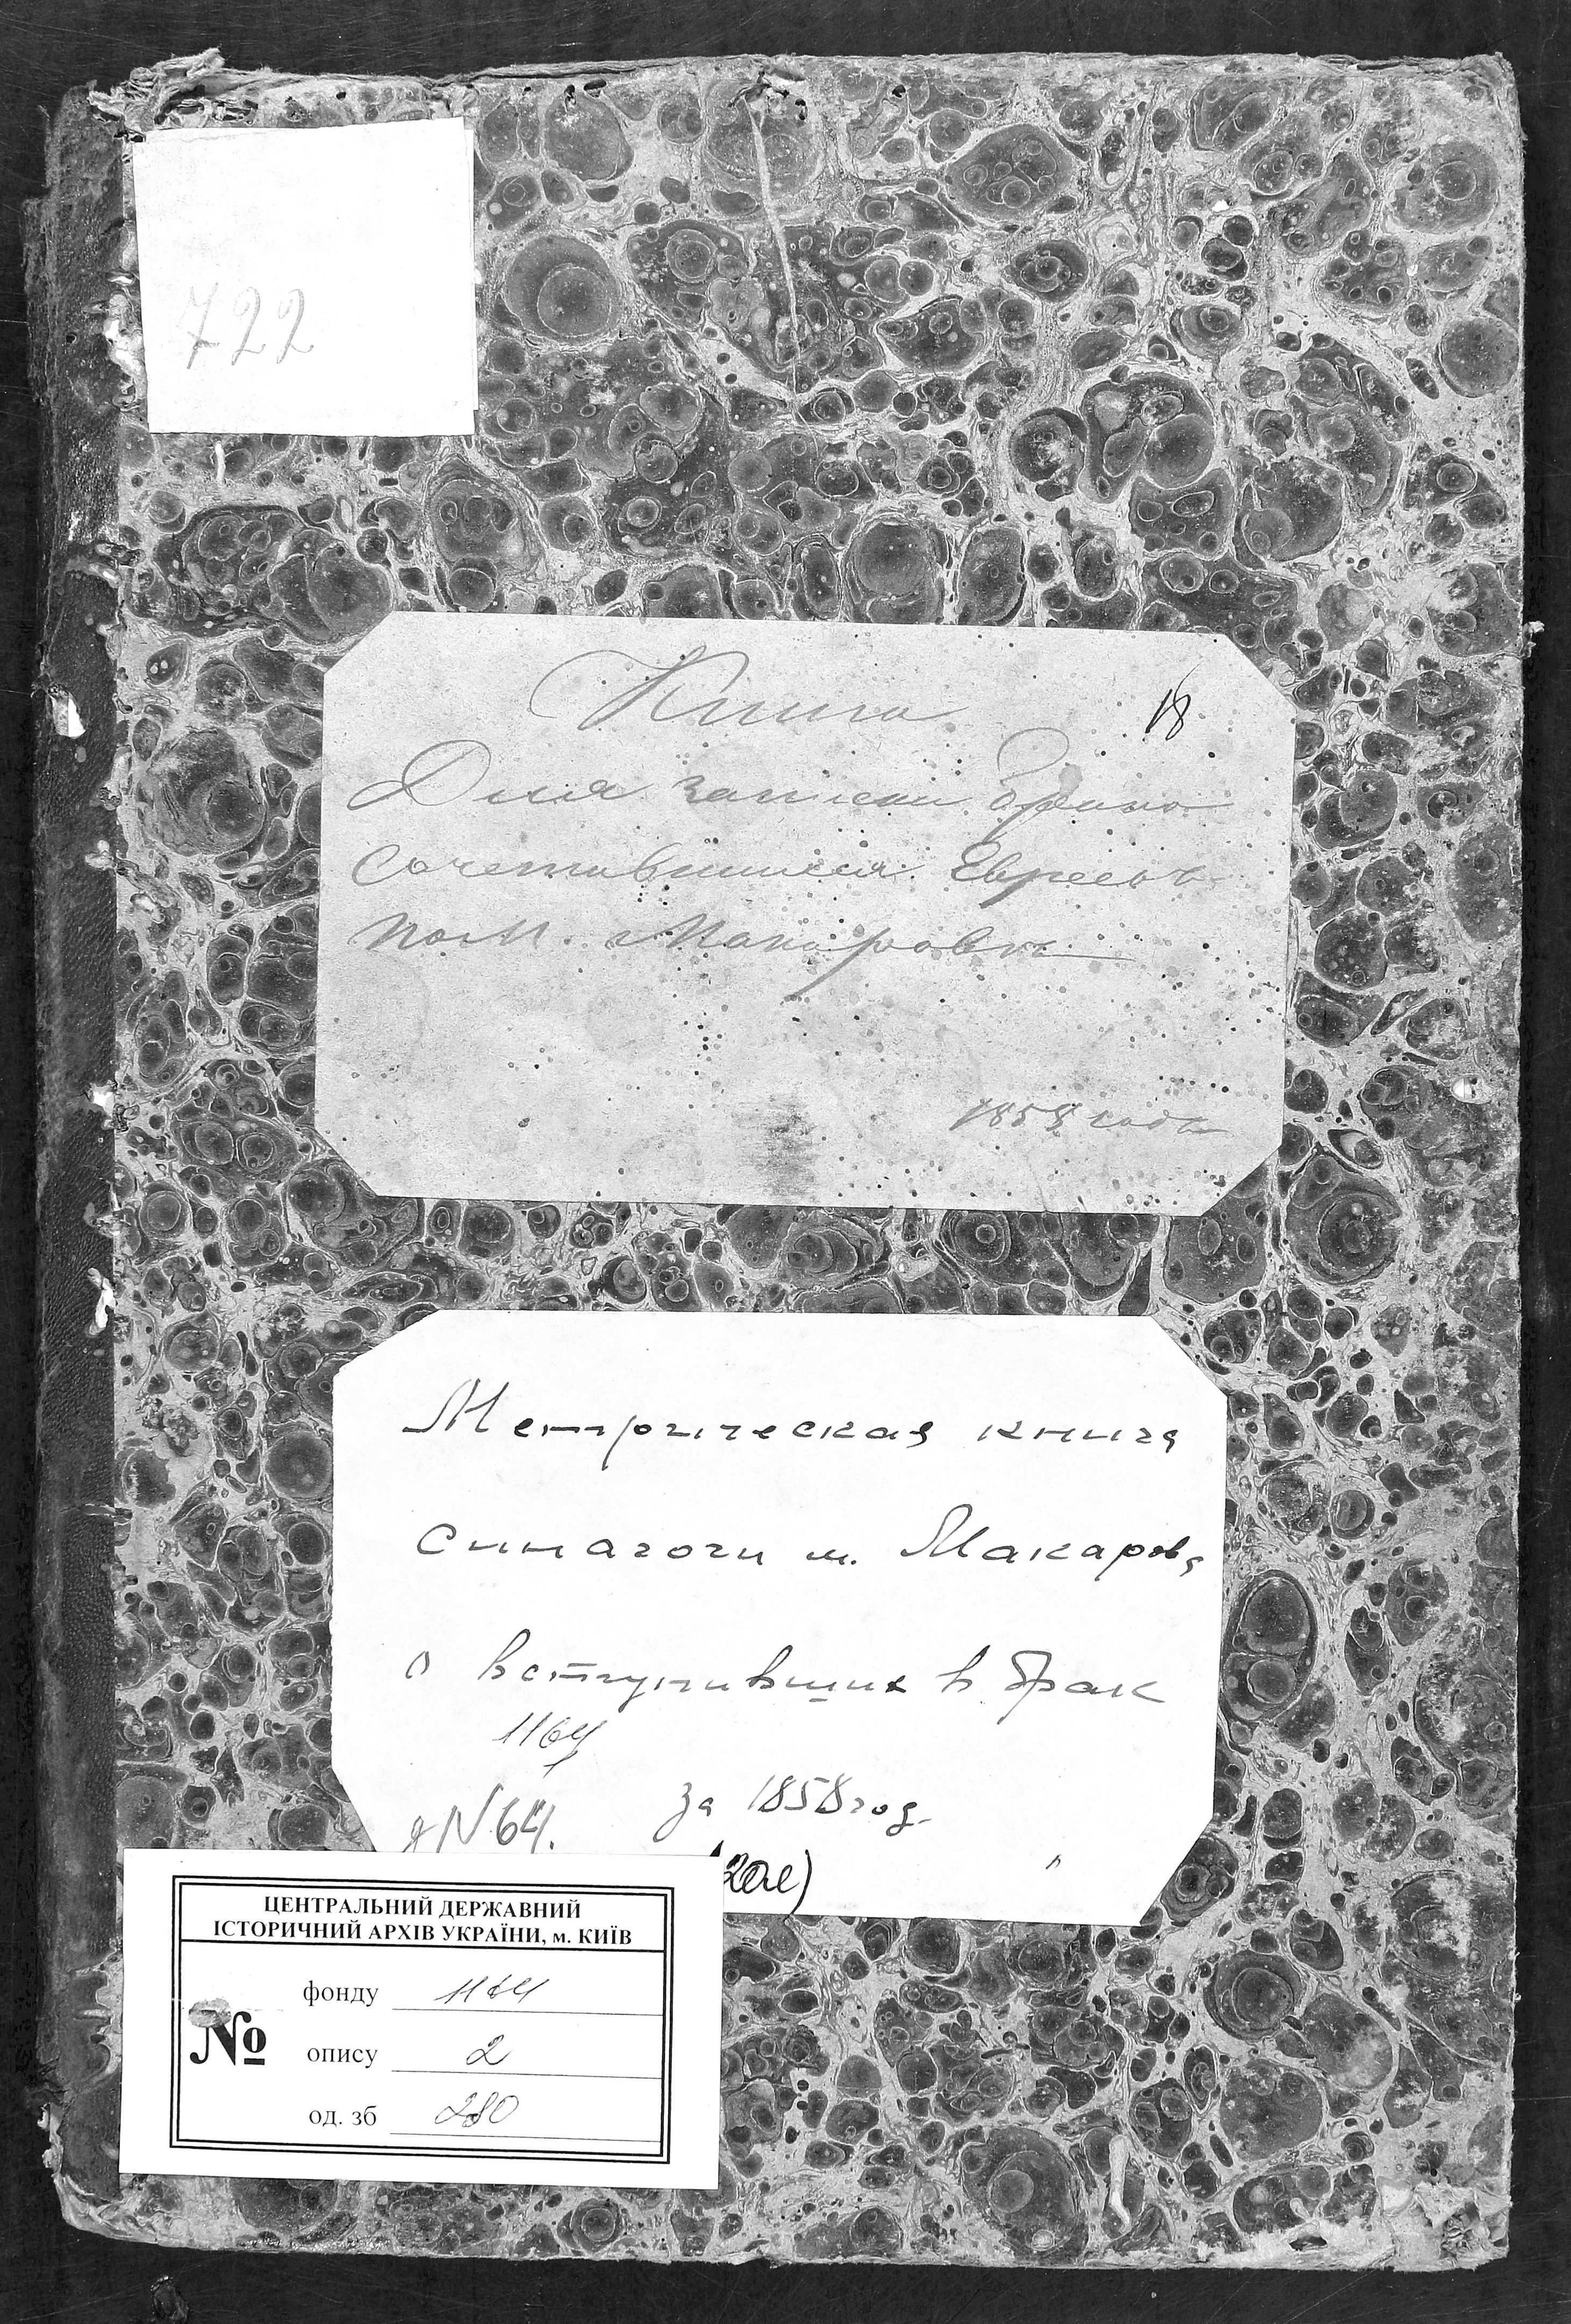 722
Книга
18
Для записки Брако
сочетавшихся Евреевъ
по М. Макаровъ
1858 годъ
Метрическая книга
синагоги м. Макарова
о вступивших в брак
1164
N 64.
за 1858 год.
ЦЕНТРАЛЬНИЙ ДЕРЖАВНИЙ
ІСТОРИЧНИЙ АРХІВ УКРАЇНИ, м. КИЇВ
фонду 1164
№ опису 2
од. зб 280